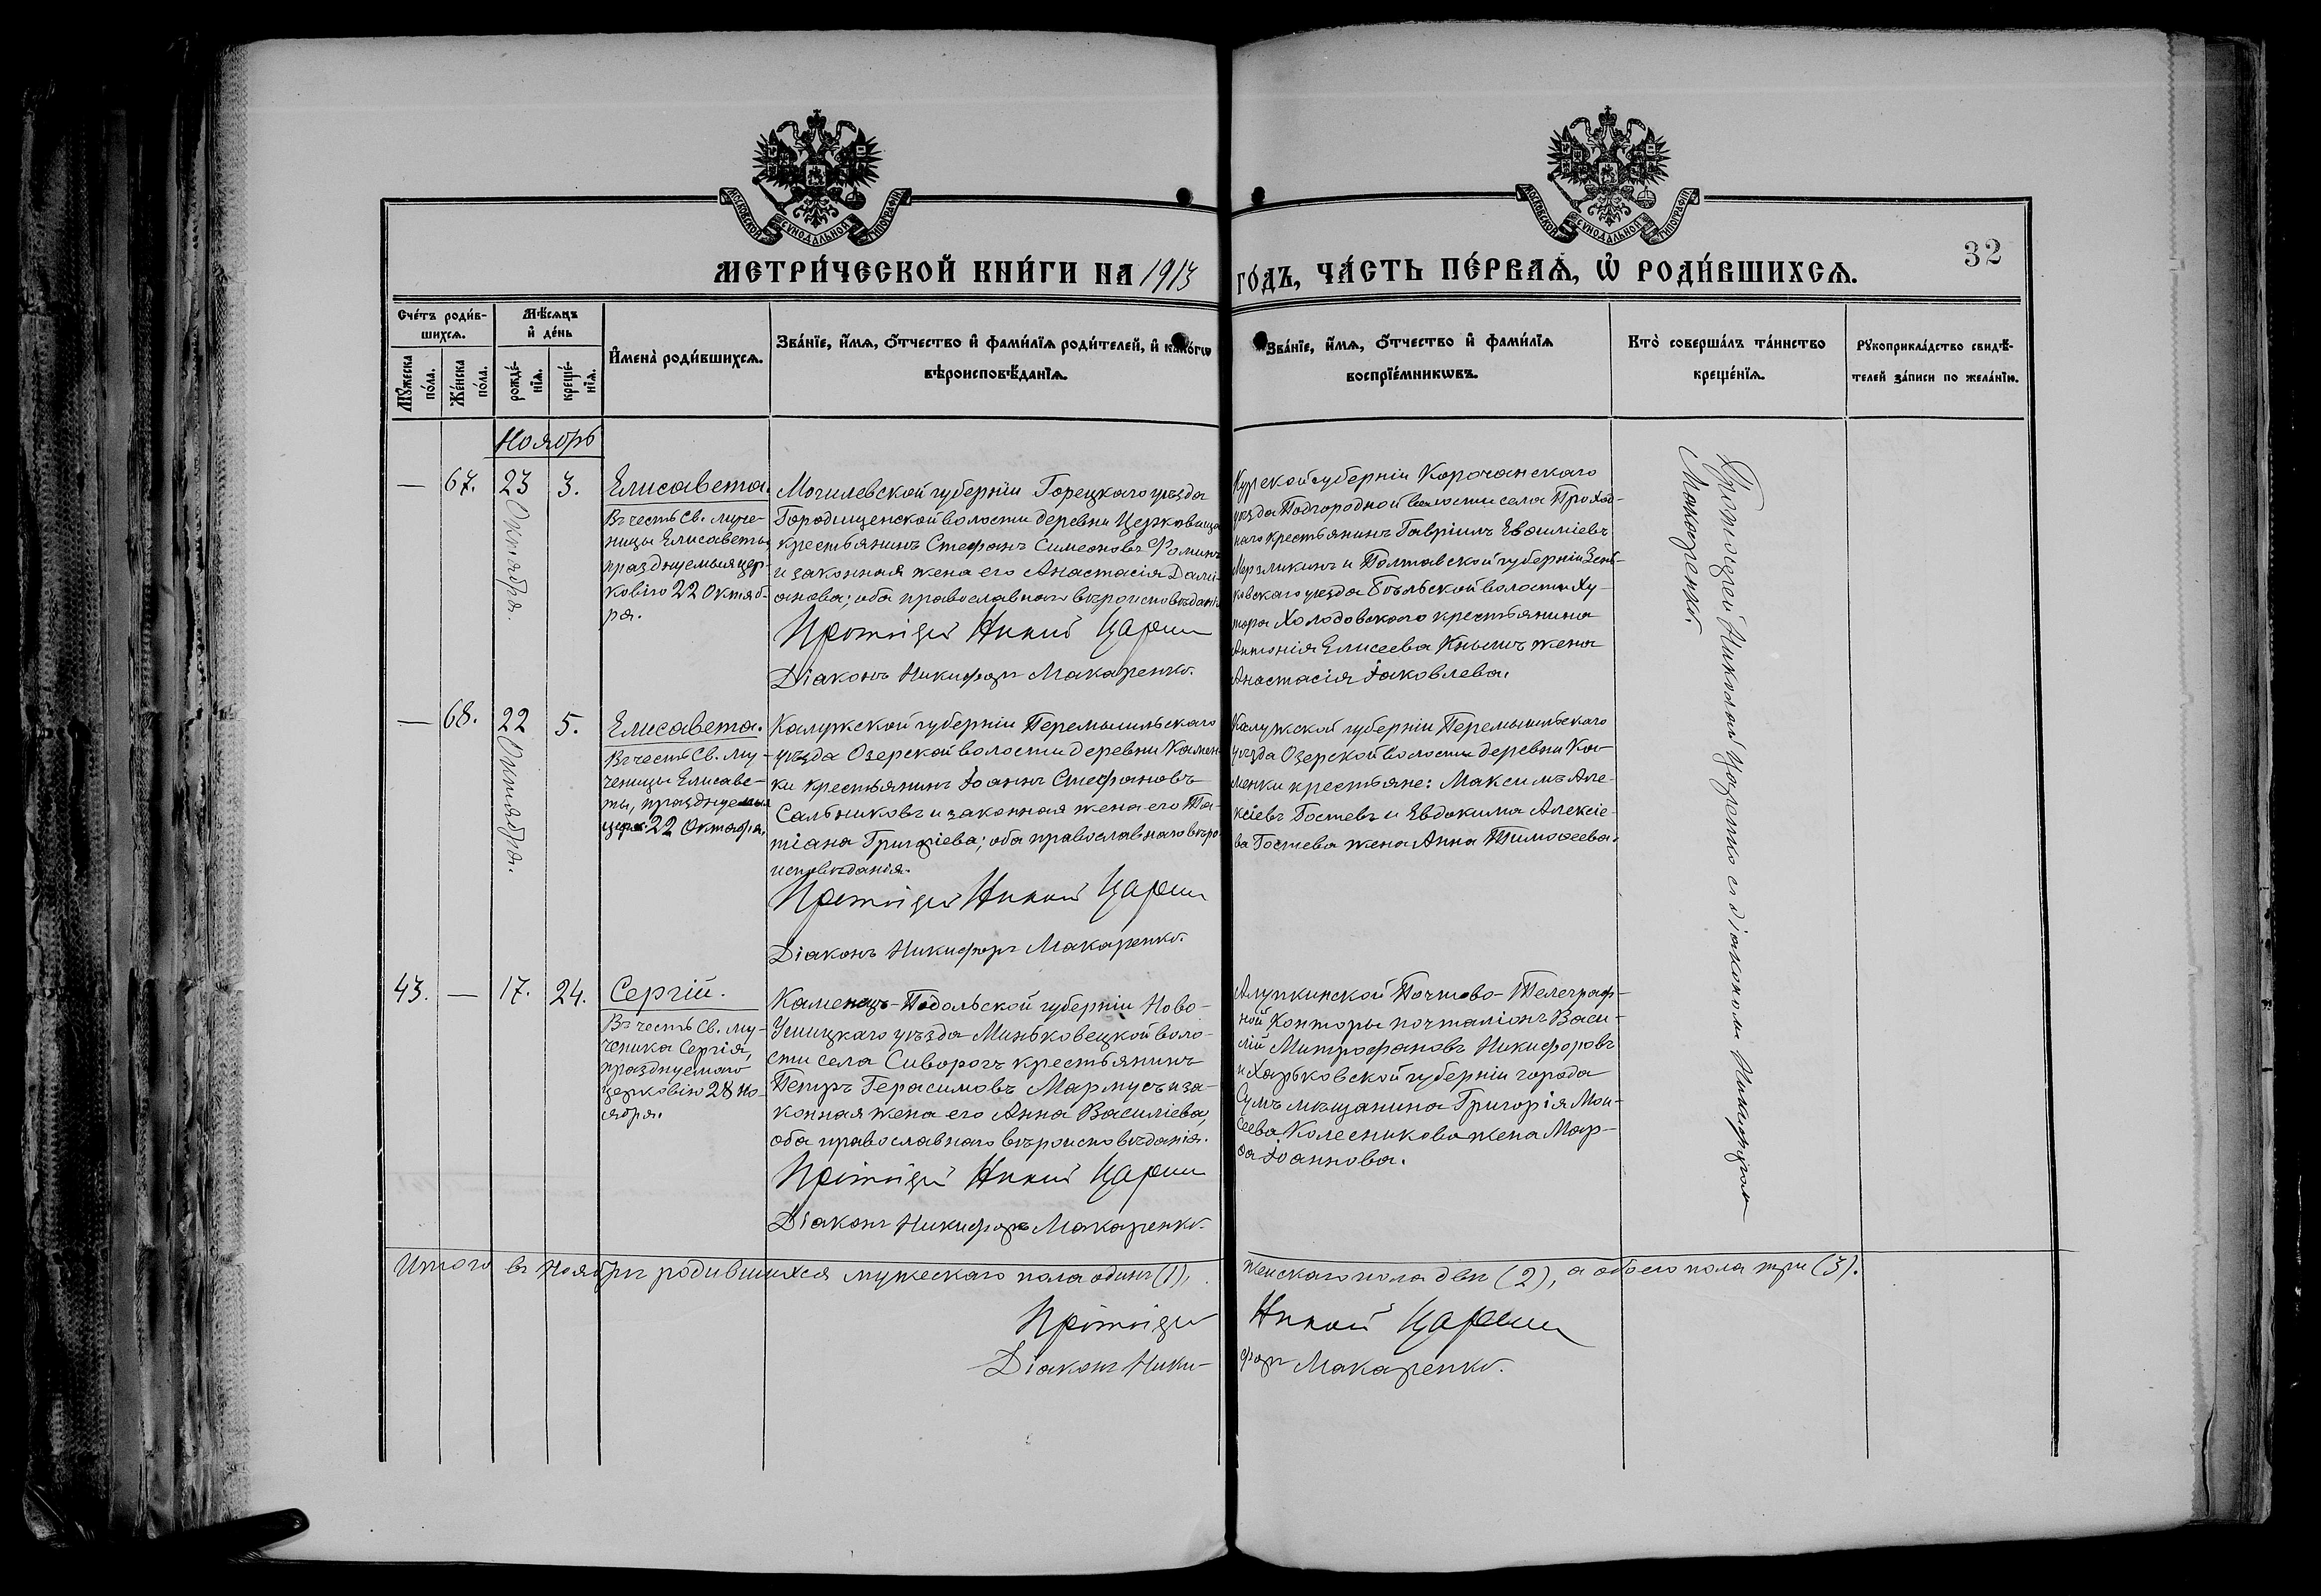 МОСКОВСКОЙ СѴНОДАЛЬНОЙ ТИПОГРАФІИ
МОСКОВСКОЙ СѴНОДАЛЬНОЙ ТИПОГРАФІИ
32
МЕТРИ́ЧЕСКОЙ КНИ́ГИ НА 1913 ГО́ДЪ, ЧА́СТЬ ПЕ́РВАѦ, Ѡ РОДИ́ВШИХСѦ.
Сче́тъ роди́в-
шихсѧ.
Мѣ́сѧцъ
и҆ де́нь
Мꙋ́жеска
по́ла.
Же́нска
по́ла.
рожде́-
нїѧ.
креще́-
нїѧ.
И҆мена̀ роди́вшихсѧ.
Зва́нїе, и҆́мѧ, ѻ҆́тчество и҆ фами́лїѧ роди́телей, и҆ како́гѡ
вѣроисповѣ́данїѧ.
Зва́нїе, и҆́мѧ, ѻ҆́тчество и҆ фами́лїѧ
воспрїе́мникѡвъ.
Кто̀ соверша́лъ та́инство
креще́нїѧ.
Рꙋкоприкла́дство свидѣ́-
телей за́писи по жела́нїю.
Ноябрь
— 67. 23 Октября. 3.
Елисавета.
Въ честь Св. муче-
ницы Елисаветы,
празднуемыя цер-
ковію 22 Октяб-
ря.
Могилевской губерніи Горецкаго уѣзда
Городищенской волости деревни Церковища
крестьянинъ Стефанъ Симеоновъ Фоминъ
и законная жена его Анастасія Дами-
анова; оба православнаго вѣроисповѣданія
Протоіерей Николай Царенко
Діаконъ Никифоръ Макаренко.
Курской губерніи Корочанскаго
уѣзда Подгородной волости села Проход-
наго крестьянинъ Гавріилъ Евѳиміевъ
Мерзликинъ и Полтавской губерніи Зень-
ковскаго уѣзда волости Ху-
тора Холодовского крестьянина
Антонія Елисеева Кнышъ жена
Анастасія Іаковлева.
Протоіерей Николай Царенко съ діакономъ Никифоромъ
Макаренко.
— 68. 22 Октября. 5.
Елисавета.
Въ честь Св. му-
ченицы Елисаве-
ты, празднуемыя
церк. 22 Октября.
Калужской губерніи Перемышльскаго
уѣзда Озерской волости деревни Камен-
ки крестьянинъ Іоаннъ Стефановъ
Сальниковъ и законная жена его Та-
тіана Григоріева; оба православнаго вѣро-
исповѣданія.
Протоіерей Николай Царенко
Діаконъ Никифоръ Макаренко.
Калужской губерніи Перемышльскаго
уѣзда Озерской волости деревни Ка-
менки крестьяне: Максимъ Але-
ксіевъ Гостевъ и Евдокима Алексіе-
ва Гостева жена Анна Тимоѳеева.
43. — 17. 24.
Сергій.
Въ честь Св. му-
ченика Сергія,
празднуемаго
церковію 28 но-
ября.
Каменецъ-Подольской губерніи Ново-
Ушицкаго уѣзда Миньковецкой воло-
сти села Сиворогъ крестьянинъ
Петръ Герасимовъ Мармусъ и за-
конная жена его Анна Василіева,
оба православнаго вѣроисповѣданія.
Протоіерей Николай Царенко
Діаконъ Никифоръ Макаренко.
Алупкинской Почтово-Телеграф-
ной Конторы почталіонъ Васи-
лій Митрофановъ Никифоровъ
и Харьковской губерніи города
Сумъ мѣщанина Григорія Мои-
сеева Колесникова жена Мар-
ѳа Іоаннова.
Итого въ Ноябрѣ родившихся мужескаго пола одинъ (1), женскаго пола двѣ (2), а обоего пола три (3).
Протоіерей Николай Царенко
Діаконъ Ники-форъ Макаренко.